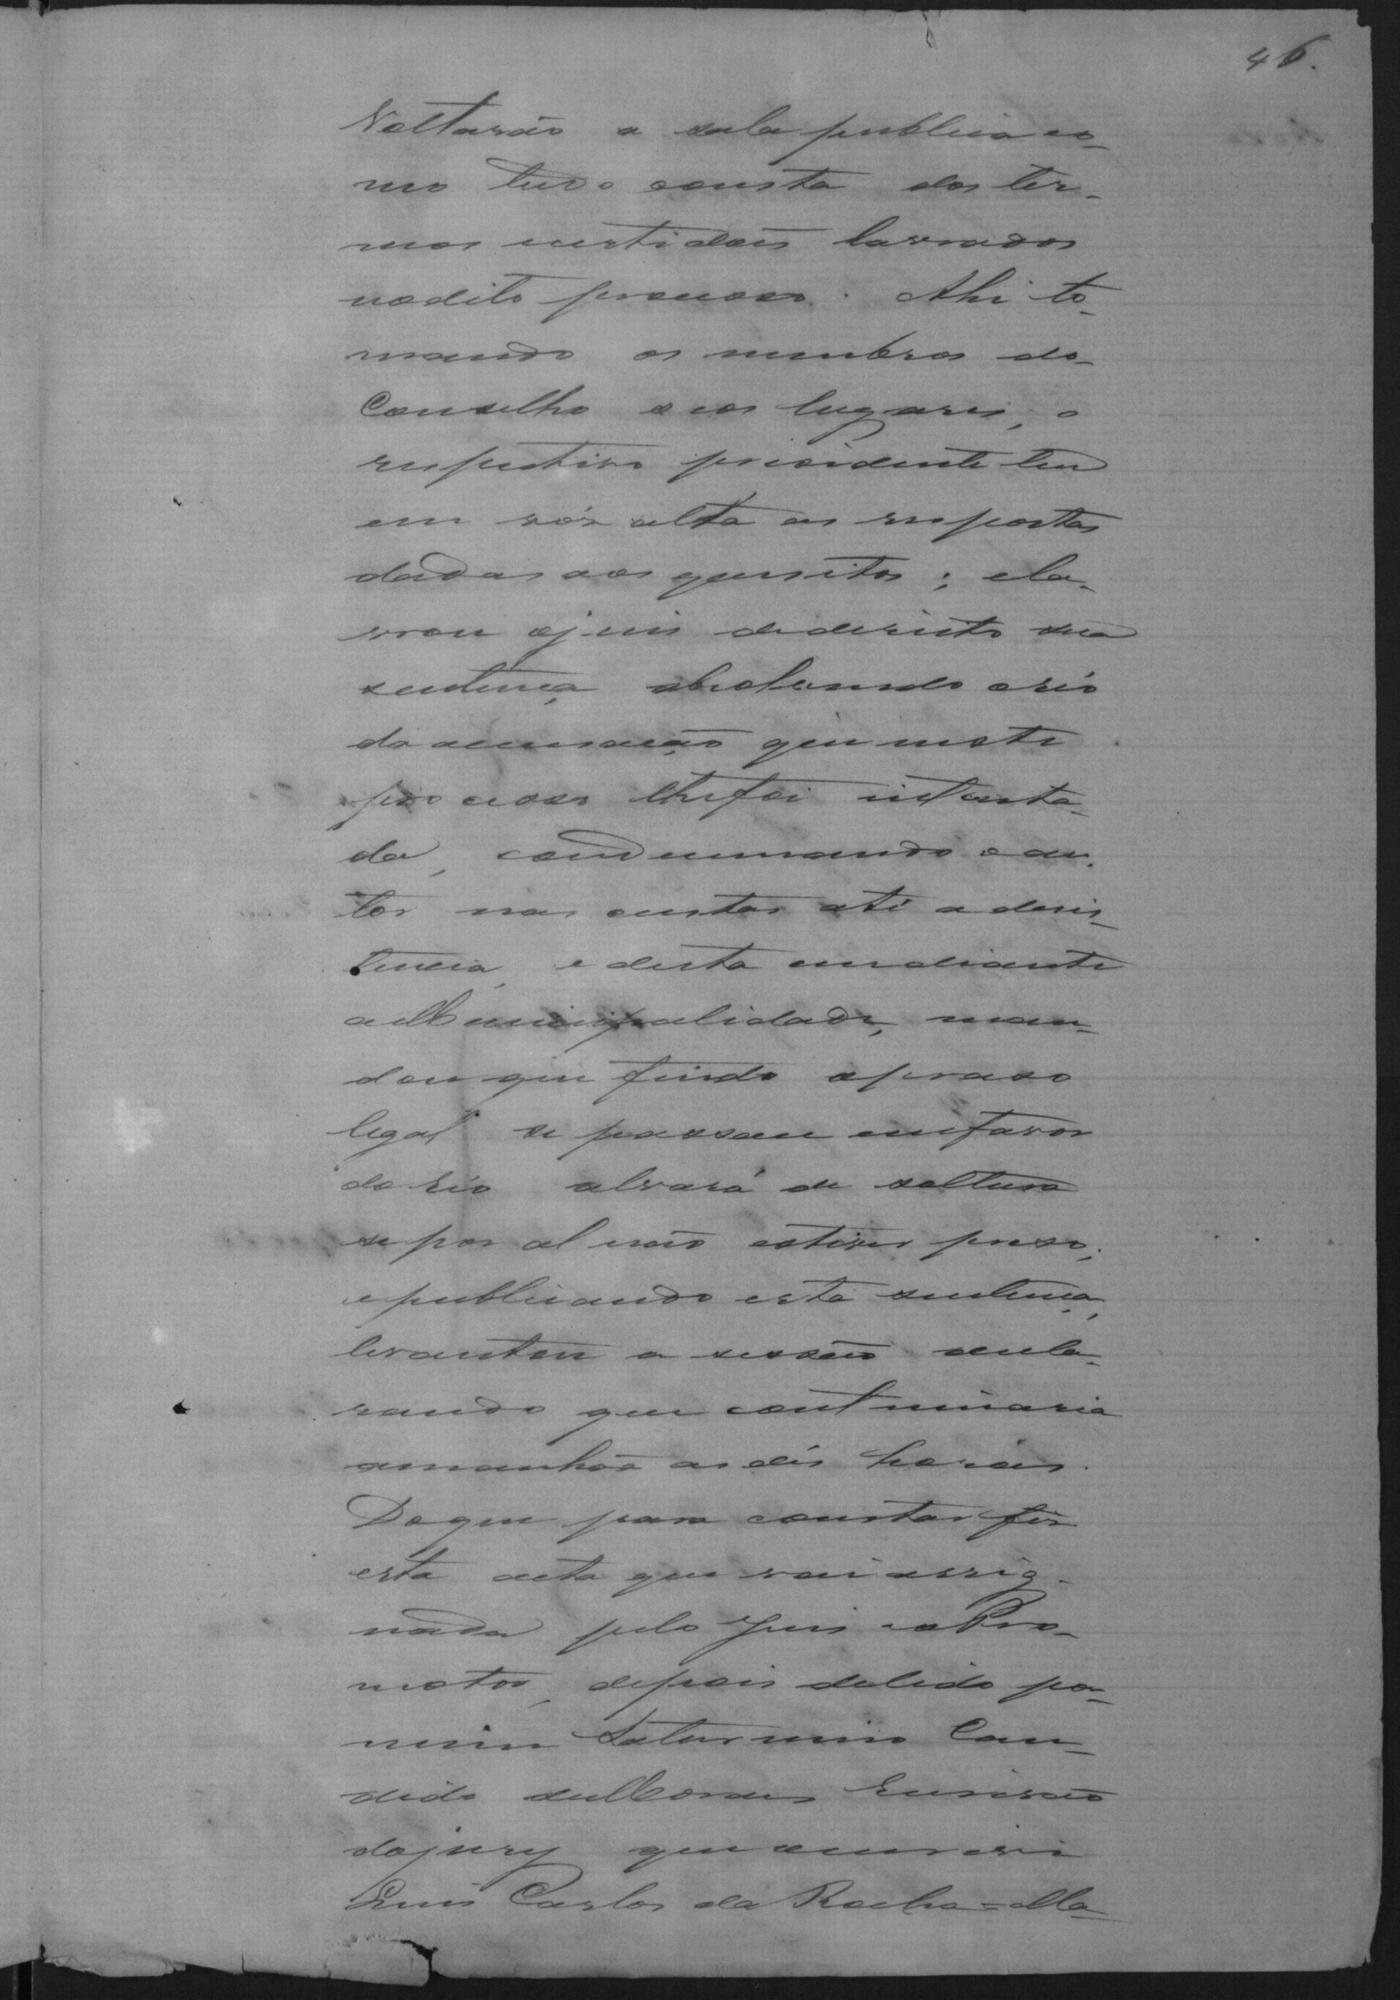 46.
Voltarão a sala publica co-
mo tudo consta dos ter-
mos certidões lavrados
nodito processo. Ahi to-
mando os membros do
Conselho seos lugares, o
respectivo presidente leu
em vós alta as respostas
dadas aos quesitos; e la-
vrou o juis dedireito sua
sentença absolvendo o réo
da accusação que neste
processo lhe foi intenta-
da, condemnando o au-
tor nas custas até a desis-
tencia, e desta em diante
a Municipalidade, man-
dou que findo o praso
legal se passou em favor
do réo alvará de soltura
se por al não estiver preso;
e publicando esta sentença,
levantou a sessão decla-
rando que continuaria
amanhão as dés horas.
Do que para constar fis
esta acta que vai assig-
nada pelo Juis e o Pro-
motor, depois de lida por
mim Saturnino Can-
dido de Moraes Escrivão
do jury que escrevi
Luis Carlos da Rocha = Ma-